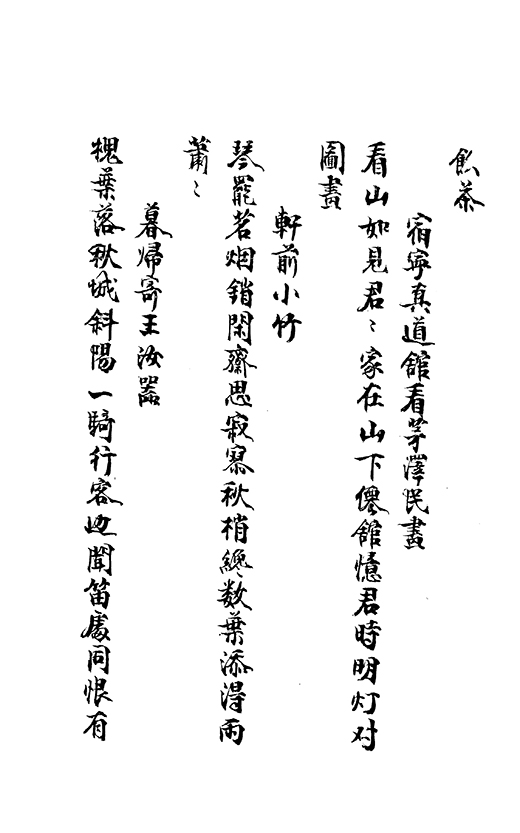 飲茶
宿寧真道館看茅澤民畫
看山如見君〻家在山下僊館憶君時明灯对
圖畫
軒前小竹
琴罷茗烟銷閑齋思寂寥秋梢纔数葉添得雨
蕭〻
暮歸寄王汝器
槐葉落秋城斜陽一騎行客邊聞笛處同恨有